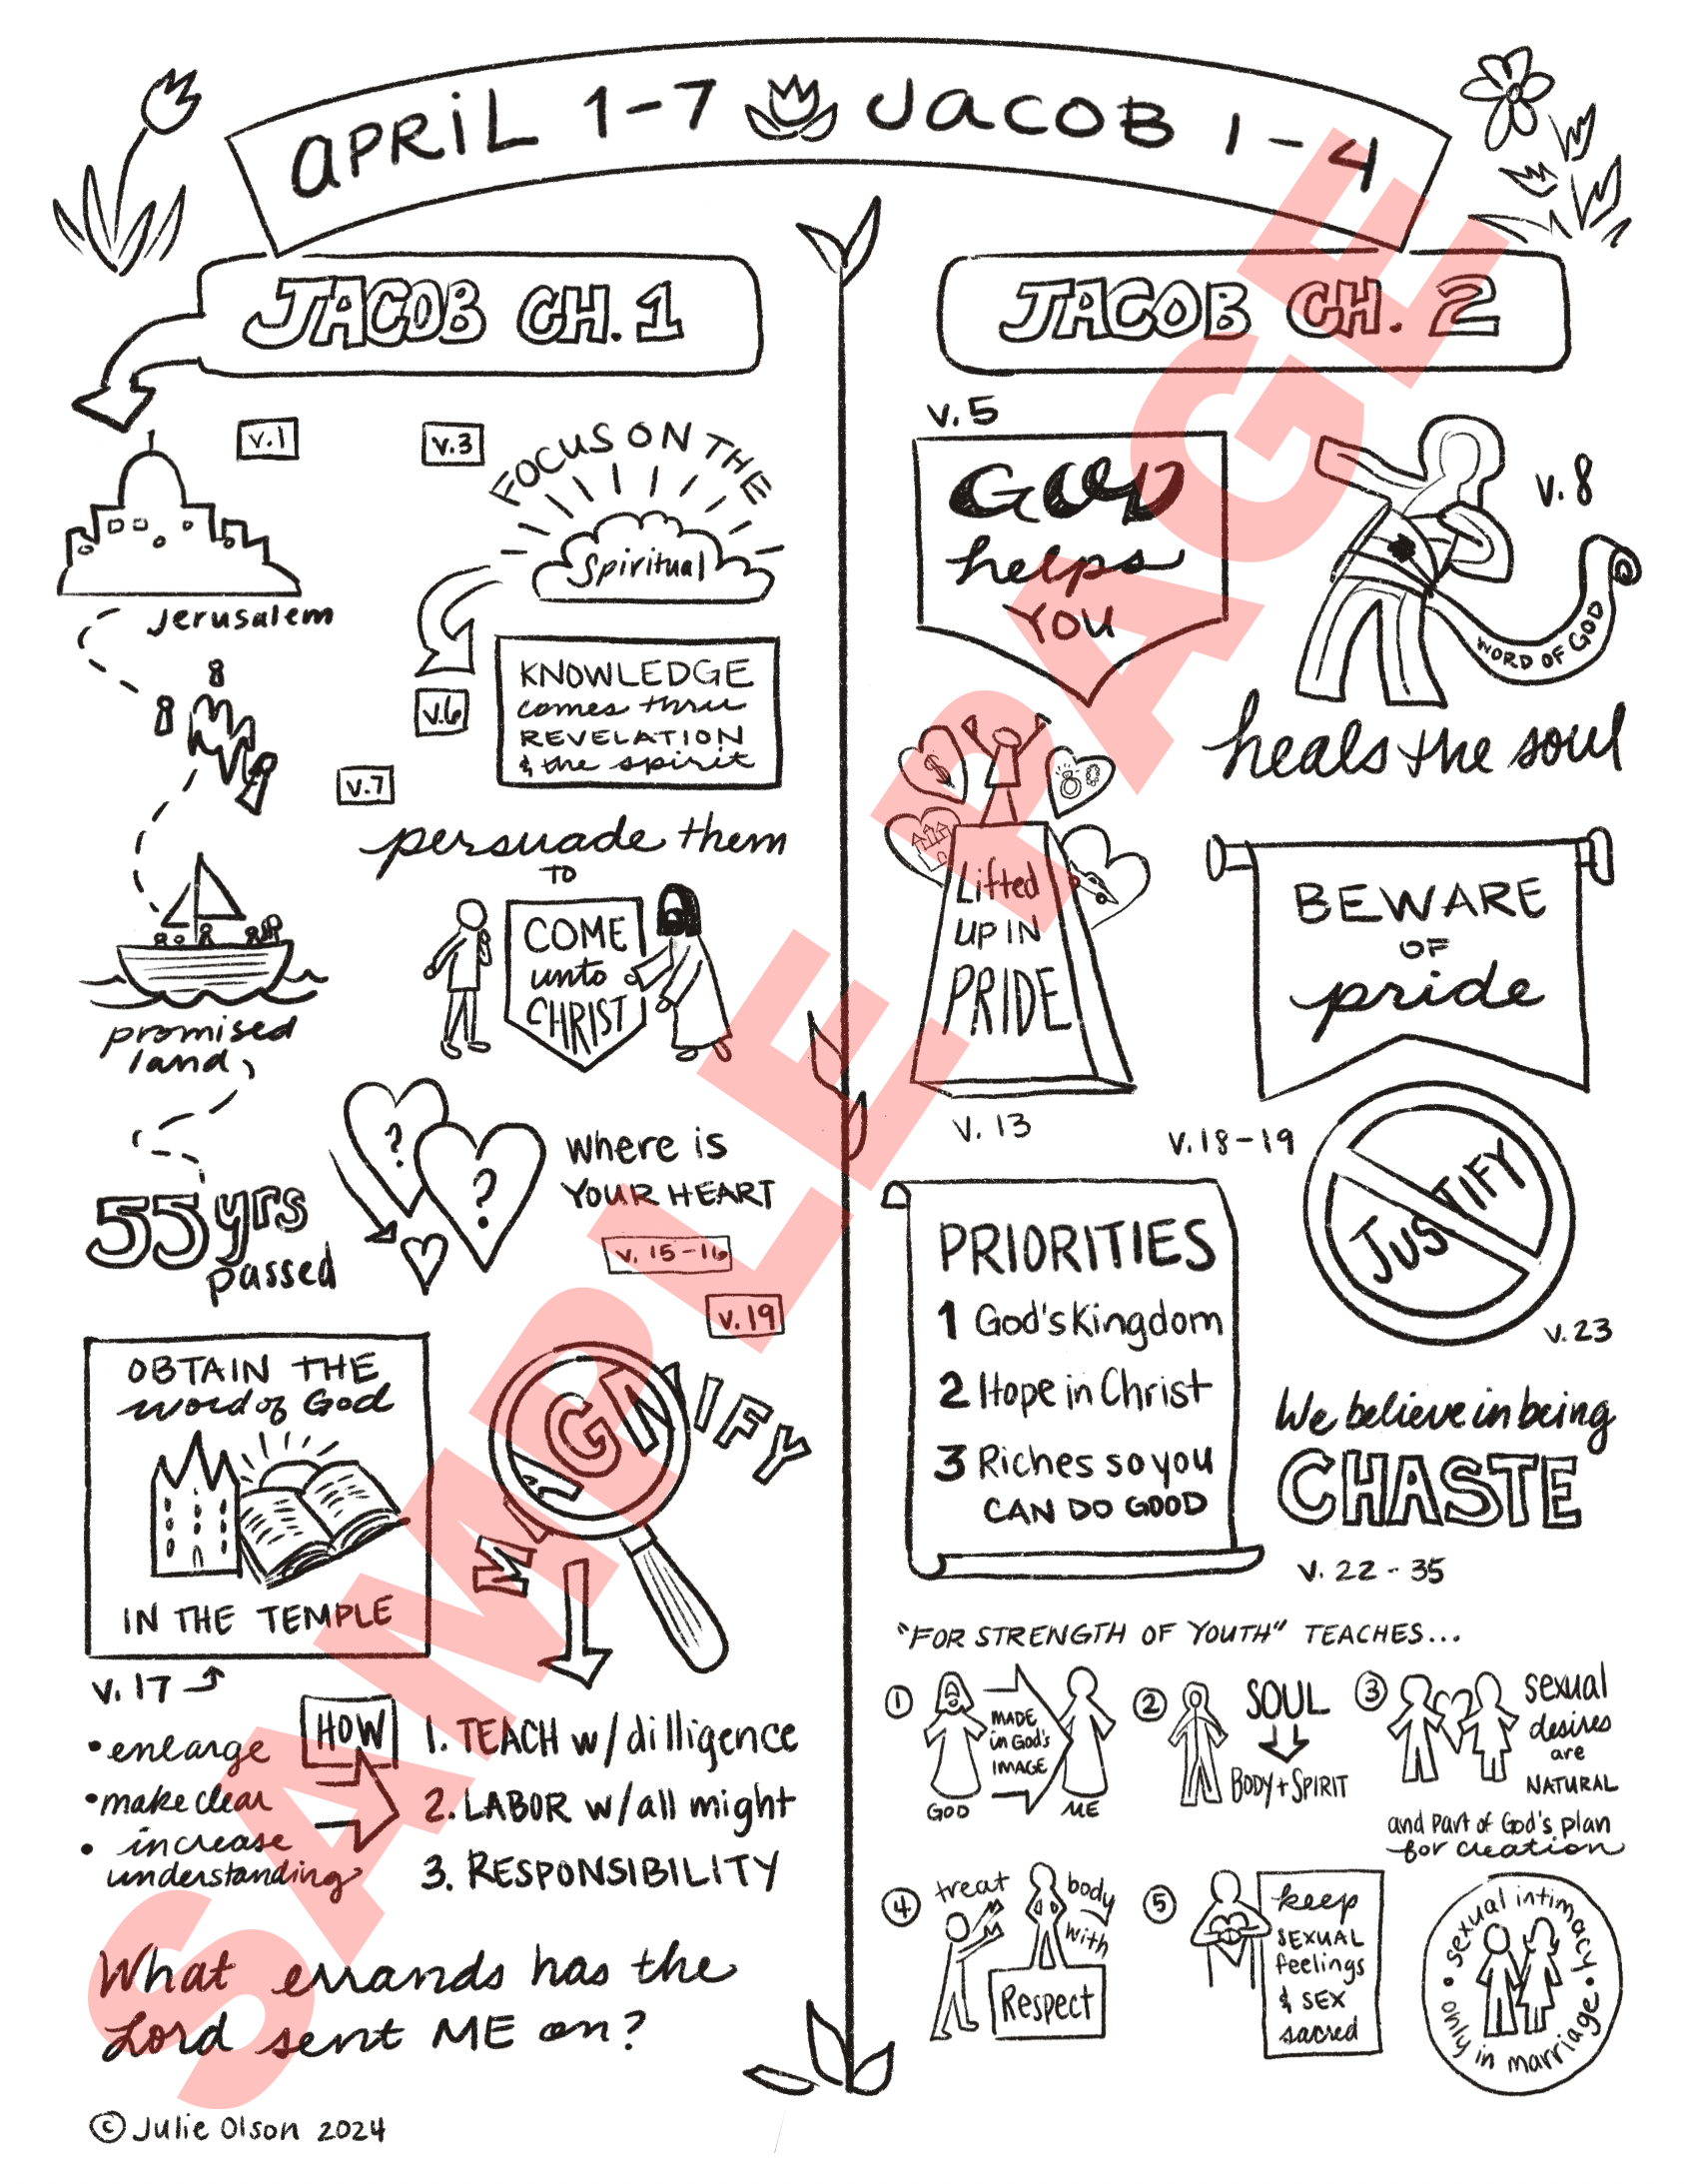 APRIL 1-7 JACOB 1-4
JACOB CH. 1
v.1
Jerusalem
promised
land,
55 yrs
passed
v.3
FOCUS ON THE
Spiritual
v.6
KNOWLEDGE
comes thru
REVELATION
& the spirit
v.7
persuade them
TO
COME
unto
CHRIST
?
?
where is
YOUR HEART
v. 15-16
OBTAIN THE
word of God
IN THE TEMPLE
v. 17
v.19
MAGNIFY
• enlarge
• make clear
• increase
understanding
HOW
1. TEACH w/ dilligence
2. LABOR w/ all might
3. RESPONSIBILITY
What errands has the
Lord sent ME on?
© Julie Olson 2024
JACOB CH. 2
v.5
GOD
helps
YOU
v.8
WORD OF GOD
heals the soul
$
Lifted
UP IN
PRIDE
v. 13
BEWARE
OF
pride
v.18-19
PRIORITIES
1 God's Kingdom
2 Hope in Christ
3 Riches so you
CAN DO GOOD
JUSTIFY
v.23
We believe in being
CHASTE
v. 22-35
"FOR STRENGTH OF YOUTH" TEACHES...
1
MADE
in God's
IMAGE
GOD
ME
2
SOUL
BODY + SPIRIT
3
sexual
desires
are
NATURAL
and part of God's plan
for creation
4
treat
body
with
Respect
5
keep
SEXUAL
feelings
& SEX
sacred
• sexual intimacy •
only in marriage
SAMPLE PAGE